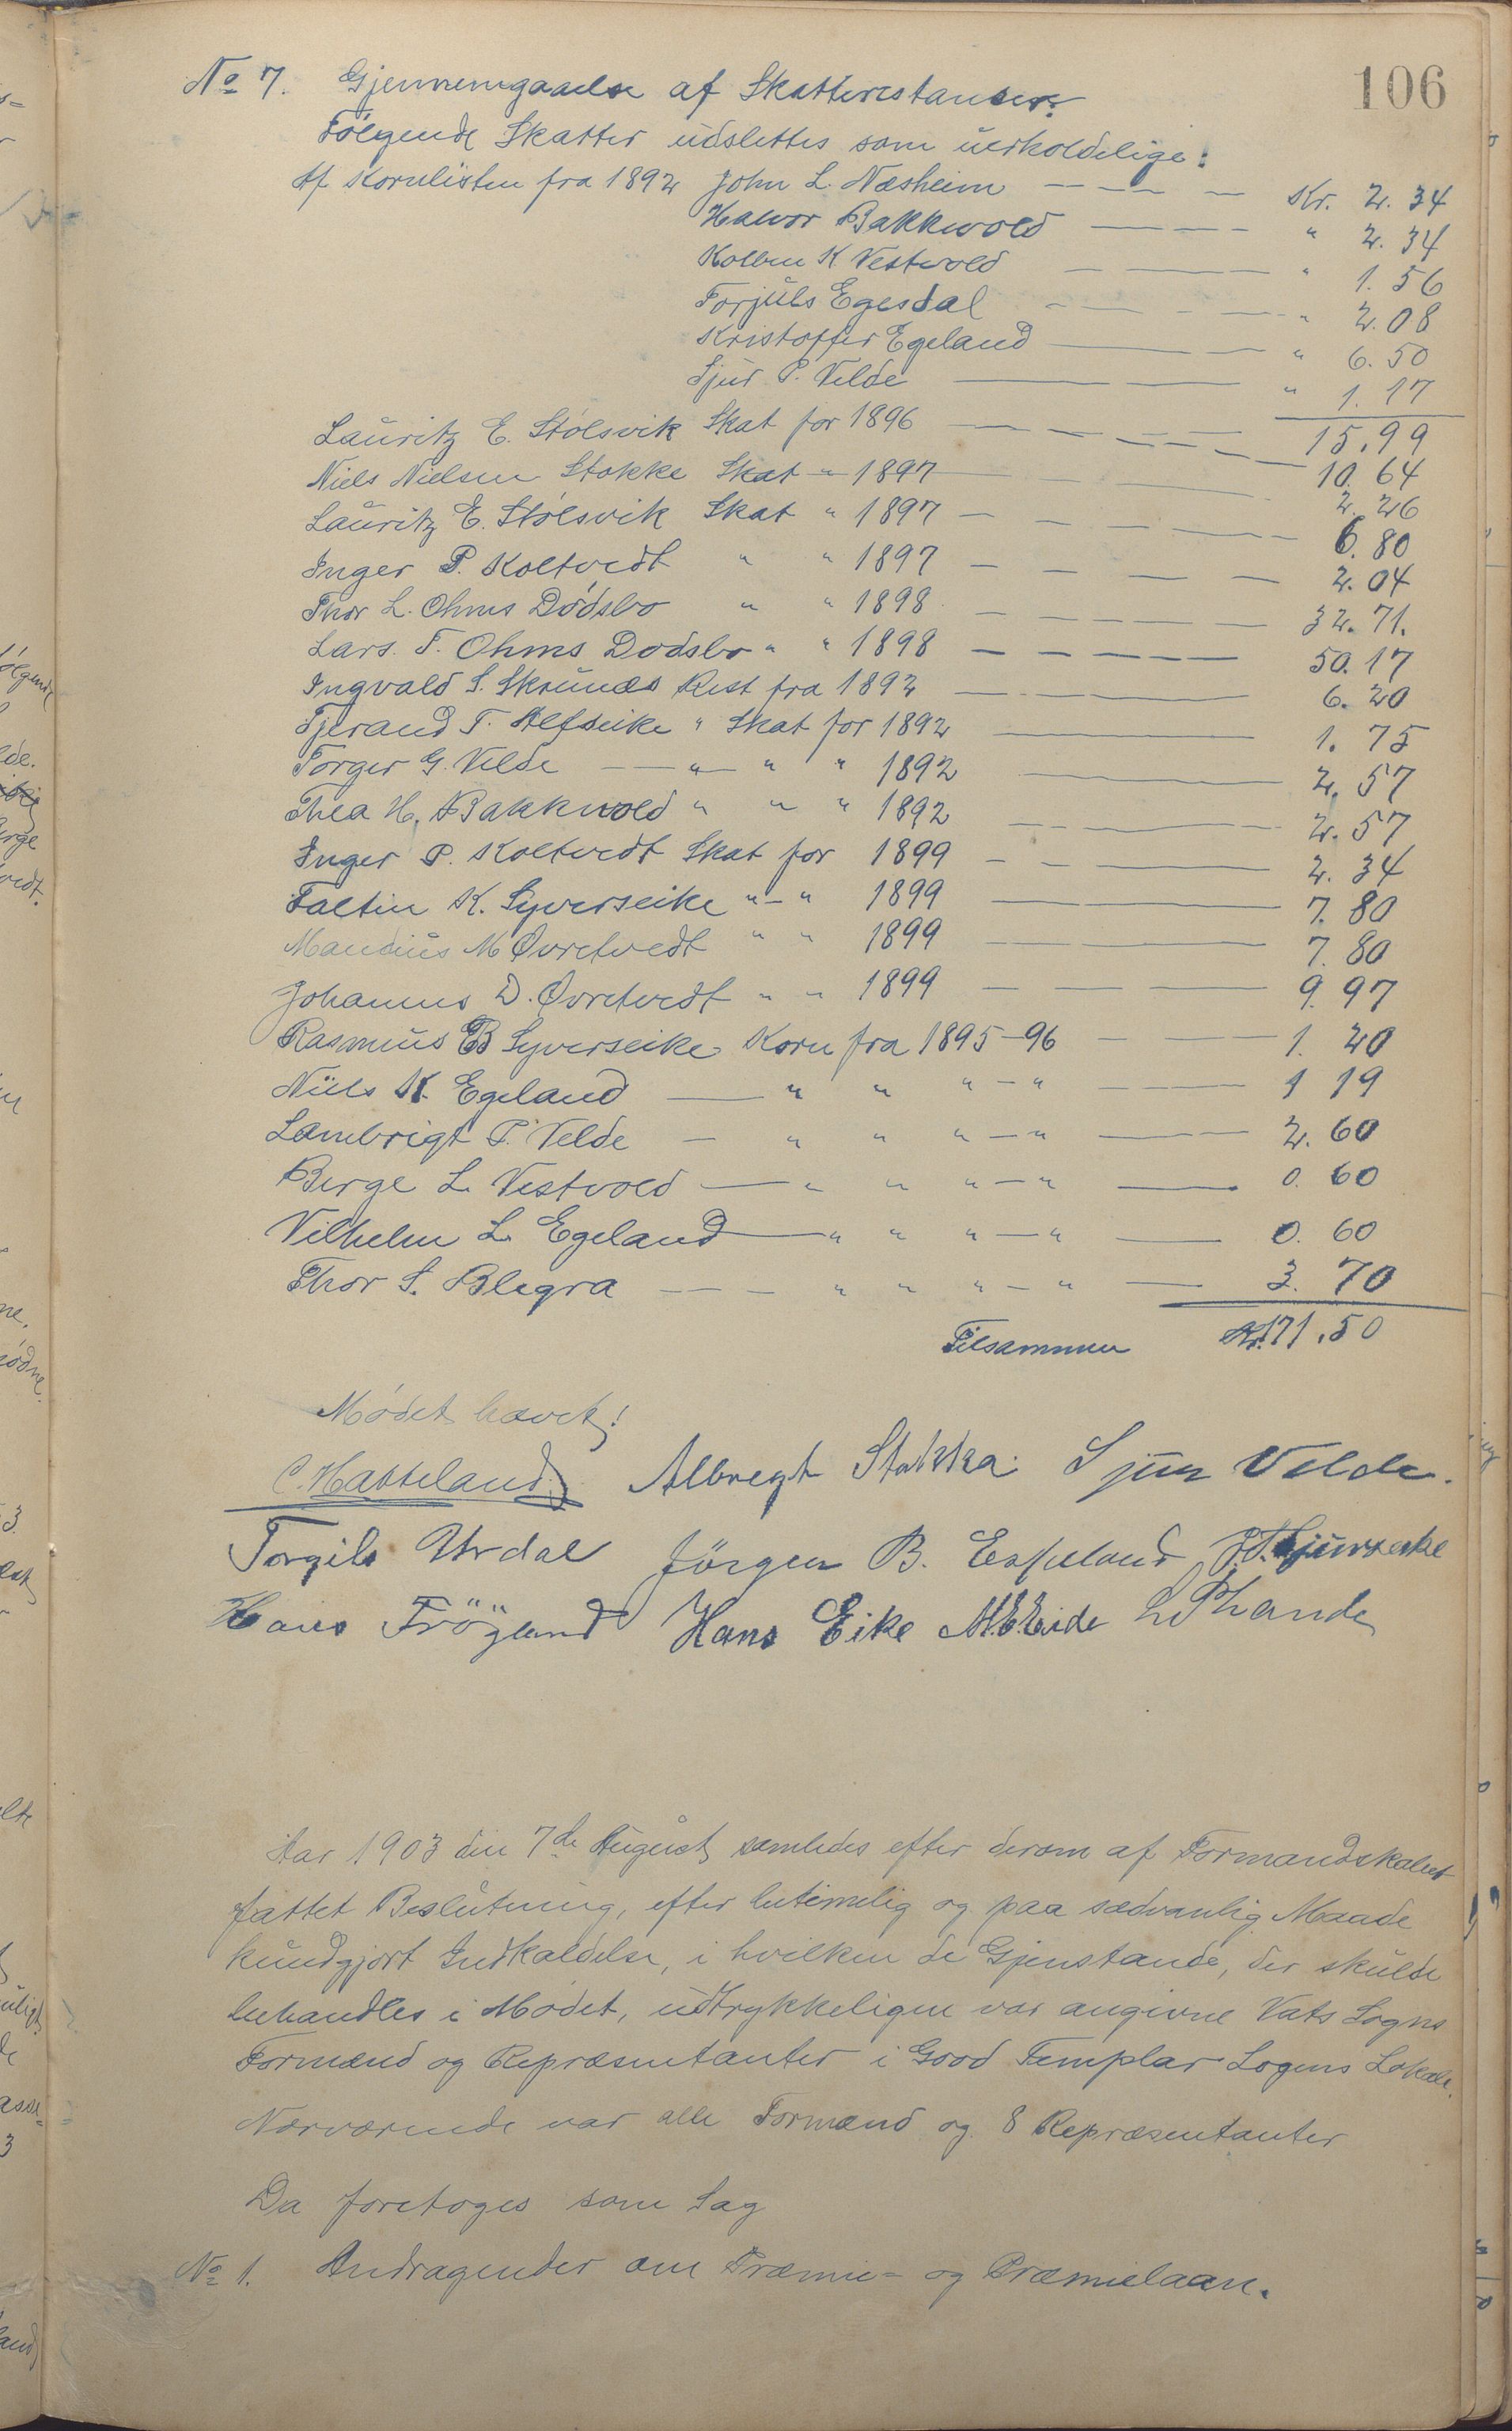 106
No 7. Gjennemgaaelse af Skatterestanser.
Følgende Skatter udslettes som uerholdelige:
Af Kornlisten fra 1892 John L. Næsheim — Kr. 2.34
Halvor Bakkevold — " 2.34
Kolben K Vestvold — " 1.56
Torjuls Egesdal — " 2.08
Kristoffer Egeland — " 6.50
Sjur P. Velde — " 1.17
15.99
Lauritz E. Stølsvik Skat for 1896 — 10.64
Niels Nielsen Stokke Skat " 1897 — 2.26
Lauritz E. Stølsvik Skat " 1897 — 6.80
Inger P. Koltvedt " " 1897 — 2.04
Thor L. Ohms Dødsbo " " 1898 — 32.71.
Lars. T. Ohms Dødsbo " " 1898 — 50.17
Ingvald S. Skrunæs Rest fra 1892 — 6.20
Tjerand T. Alfseike " Skat for 1892 — 1.75
Torger G. Velde — " " " 1892 — 2.57
Thea H. Bakkevold " " " 1892 — 2.57
Inger P. Koltvedt Skat for 1899 — 2.34
Faltin K. Syverseike " — " 1899 — 7.80
Mandius M Øvretvedt " " 1899 — 7.80
Johannes D. Øvretvedt " " 1899 — 9.97
Rasmus B Syverseike Korn fra 1895-96 — 1.20
Niels K. Egeland — " " " — " — 1 19
Lambrigt P. Velde — " " " — " — 2.60
Berge L. Vestvold — " " " — " — 0.60
Vilhelm L. Egeland — " " " — " — 0.60
Thor S. Blegra — " " " — " — 3.70
Tilsammen Kr. 171.50
Mødet hævet!
C. Hatteland. Albregt Stakka. Sjur Velde.
Torgils Urdal Jörgen B. Espeland
Hans Frögland Hans Eike
Aar 1903 den 7de August samledes efter derom af Formandskabet
fattet Beslutning, efter betimelig og paa sædvanlig Maade
kundgjort Indkaldelse, i hvilken de Gjenstande, der skulde
behandles i Mødet, udtrykkeligen var angivne Vats Sogns
Formænd og Repræsentanter i Good Templar Logens Lokale.
Nærværende var alle Formænd og 8 Repræsentanter
Da foretoges som Sag
No 1. Andragender om Præmie- og Præmielaan.